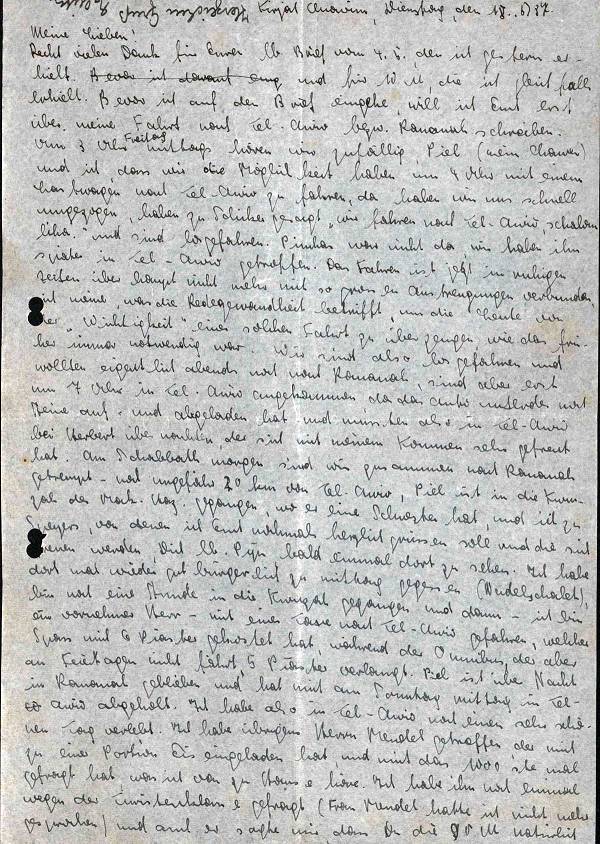 Herzlichen Gruss
Kirjat Anavim, Dienstag, den 18. 5. 37.
Meine Lieben!
Recht vielen Dank für Euren lb Brief vom 4. 5., den ich gestern er-
hielt. und für 10 M, die ich gleichfalls
erhielt. Bevor ich auf den Brief eingehe, will ich Euch erst
über meine Fahrt nach Tel-Aviv bezw. Ramanah schreiben.
Um 3 Uhr Freitag mittags hören wir zufällig, Piel (mein Chawer)
und ich, dass wir die Möglichkeit haben um 4 Uhr mit einem
Lastwagen nach Tel-Aviv zu fahren, da haben wir uns schnell
umgezogen, haben zu gesagt, "wir fahren nach Tel-Aviv, schalom
" und sind losgefahren. Pinchas war nicht da wir haben ihn
später in Tel-Aviv getroffen. Das Fahren ist jetzt in ruhigen
Zeiten überhaupt nicht mehr mit so grossen Anstrengungen verbunden,
ich meine, was die Redegewandheit betrifft, um die Leute von
der "Wichtigkeit" einer solchen Fahrt zu überzeugen, wie das frü-
her immer notwendig war. Wir sind also losgefahren und
wollten eigentlich abends noch nach Ramanah, sind aber erst
um 7 Uhr in Tel-Aviv angekommen da das Auto unterwegs noch
Steine auf- und abgeladen hat und mussten also in Tel-Aviv
bei Herbert übernachten, der sich mit meinem Kommen sehr gefreut
hat. Am Schabbath morgen sind wir zusammen nach Ramanah
getrampt - noch ungefähr 20 km von Tel-Aviv, Piel ist in die Kwu-
zah des gegangen, wo er eine Schwester hat, und ich zu
Speyers, von denen ich Euch nochmals herzlich grüssen soll und die sich
freuen werden Dich lb. bald einmal dort zu sehen. Ich habe
dort mal wieder gut bürgerlich zu mittag gegessen (Nudelschalet),
bin noch eine Stunde in die Kwuzah gegangen und dann - ich bin
ein vornehmer Herr - mit einer Taxe nach Tel-Aviv gefahren, welcher
Spass mich 6 Piaster gekostet hat, während der Omnibus, der aber
an Feiertagen nicht fährt, 5 Piaster verlangt. Piel ist über Nacht
in Ramanah geblieben und hat mich am Sonntag mittag in Tel-
Aviv abgeholt. Ich habe also in Tel-Aviv noch einen sehr schö-
nen Tag verlebt. Ich habe übrigens Herrn Mendel getroffen der mich
zu einer Portion Eis eingeladen hat und mich das 1000 'ste mal
gefragt hat was ich von zu Hause höre. Ich habe ihn noch einmal
wegen der gefragt (Frau Mendel hatte ich nicht mehr
gesprochen) und auch er sagte mir, dass die M natürlich